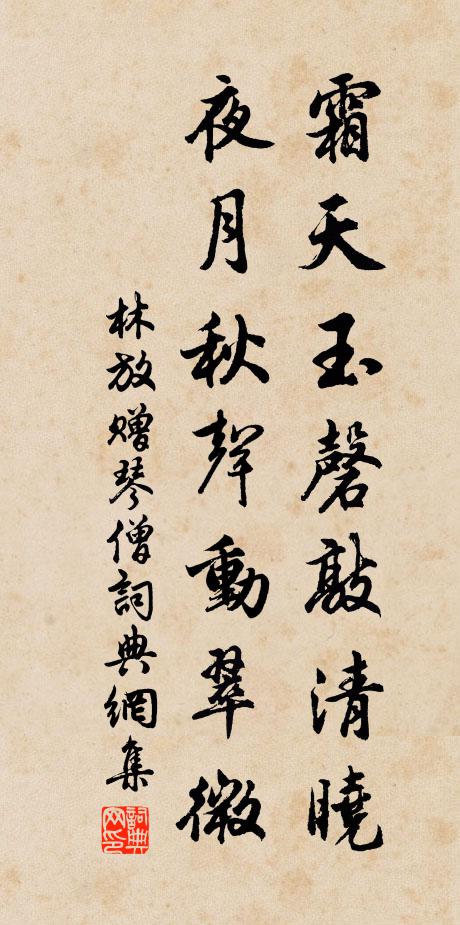 霜天玉磬敲清曉
夜月秋聲動翠微
林放贈琴僧詞典網集
詞典网印